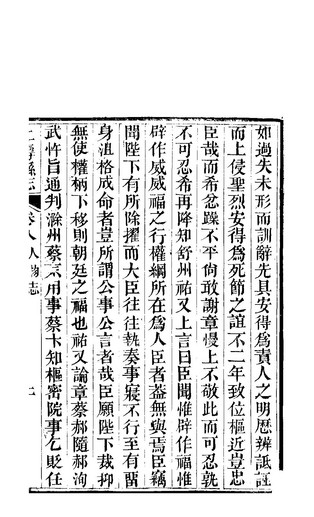 如過失未形而訓辭先具安得爲責人之明歷辨詆誣
而上侵聖烈安得爲死節之誼不二年致位樞近豈忠
臣哉而希忿躁不平尚敢謝章慢上不敬此而可忍孰
不可忍希再降知舒州祐又上言曰臣聞惟辟作福惟
辟作威威福之行權綱所在爲人臣者葢無與焉臣竊
聞陛下有所除擢而大臣往往執奏事寢不行至有畱
身沮格成命者豈所謂公事公言者哉臣願陛下裁抑
無使權柄下移則朝廷之福也祐又論章蔡郝隨郝洵
武忤旨通判滁州蔡京用事蔡卞知樞密院事乞貶任
縣志
卷八人物志